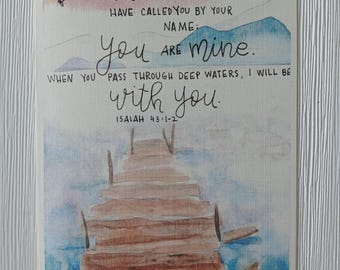 HAVE CALLED YOU BY YOUR
NAME;
you ARE mine.
WHEN YOU PASS THROUGH DEEP WATERS, I WILL BE
with you.
ISAIAH 43:1-2